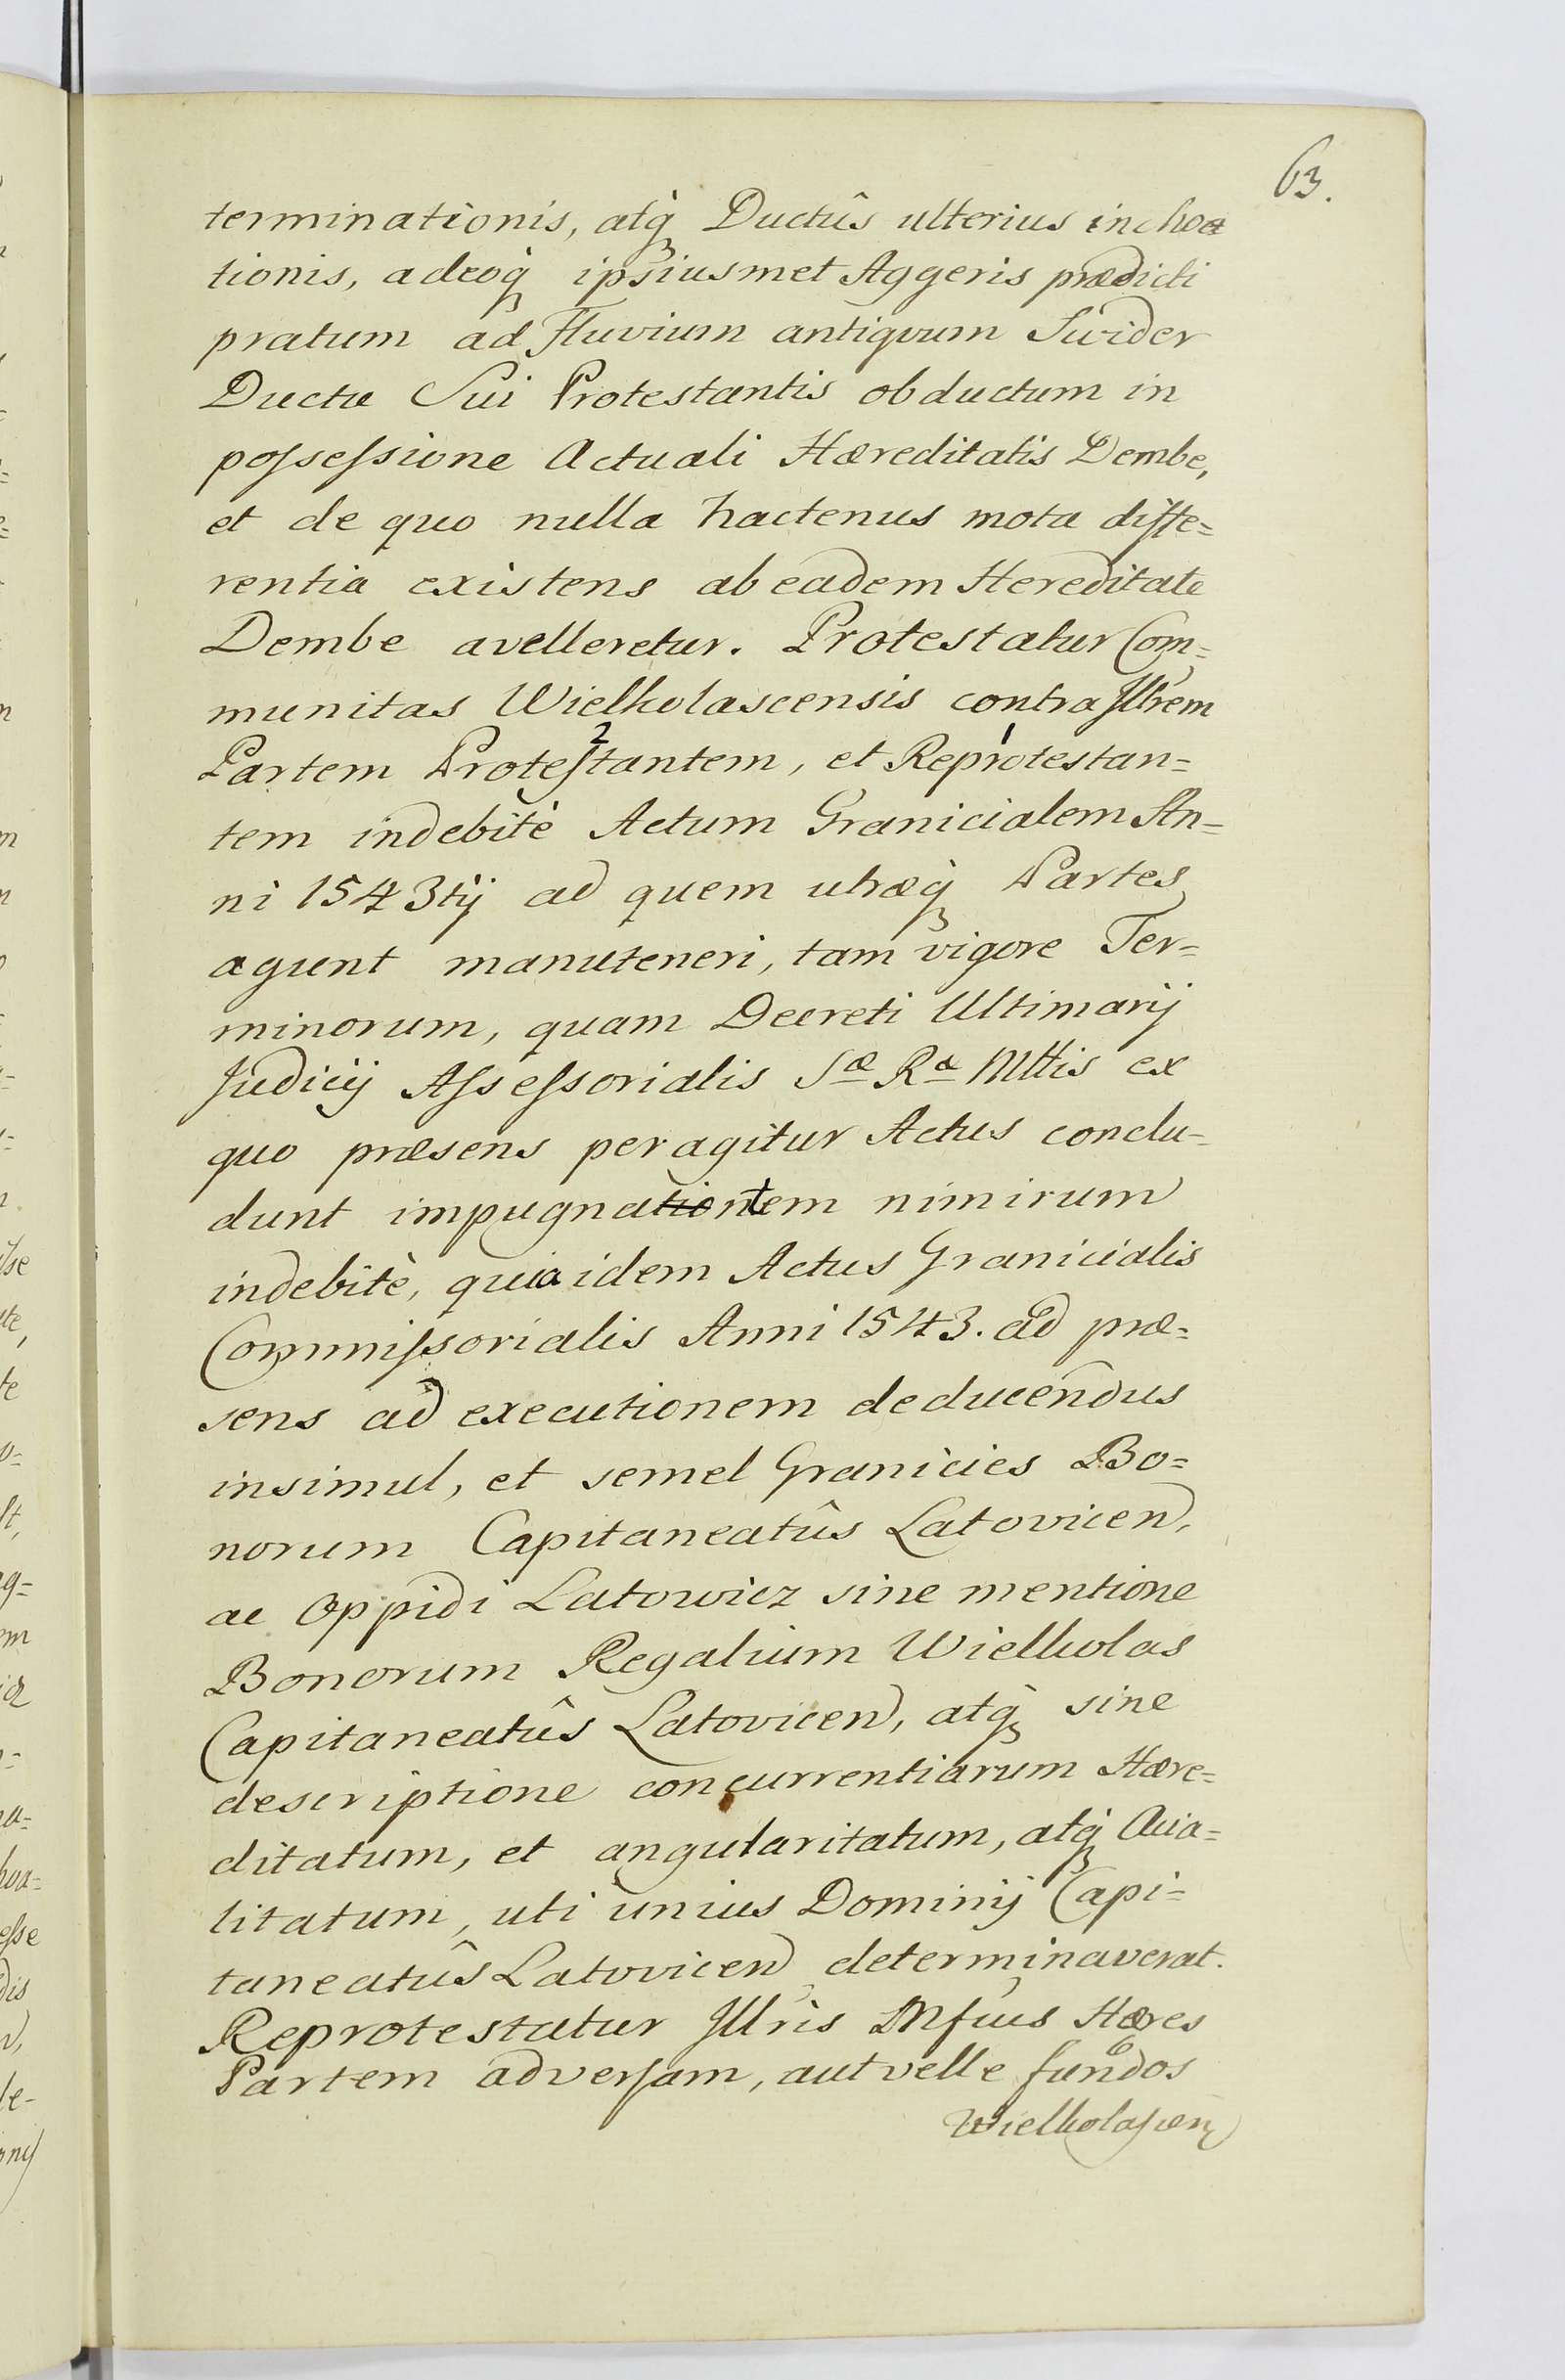 63.
terminationis, atq́ Ductûs ulterius inchoa
tionis, adeoq́ ipsiusmet Aggeris prædicti
pratum ad Fluvium antiqvum Swider
Ductu Sui Protestantis obductum in
poſseſsione Actuali Hæreditatis Dembe,
et de quo nulla hactenus mota diffe=
rentia existens ab eadem Hereditate
Dembe avelleretur. Protestatur Com=
munitas Wielkolascensis contra Jllrem
Partem Proteſtantem, et Reprotestan=
tem indebitè Actum Granicialem An=
ni 1543tij ad quem utræq́ Partes
agunt manuteneri, tam vigore Ter=
minorum, quam Decreti Ultimarij
Judicij Aſseſsorialis Sæ Ræ Mttis ex
quo præsens peragitur Actus conclu=
dunt impugnantem nimirum
indebitè, quia idem Actus Granicialis
Commiſsorialis Anni 1543. ad præ=
sens ad executionem deducendus
insimul, et semel Granicies Bo=
norum Capitaneatûs Latovicen,
ac Oppidi Latowicz sine mentione
Bonorum Regalium Wielkolas
Capitaneatûs Latovicen, atq́ sine
descriptione concurrentiarum Hære=
ditatum, et angularitatum, atq́ Acia=
litatum, uti unius Dominij Capi=
taneatûs Latovicen determinaverat.
Reprotestatur Jllris Mfcus Hæres
Partem adverſam, aut velle fundos
Wielkolaſcen